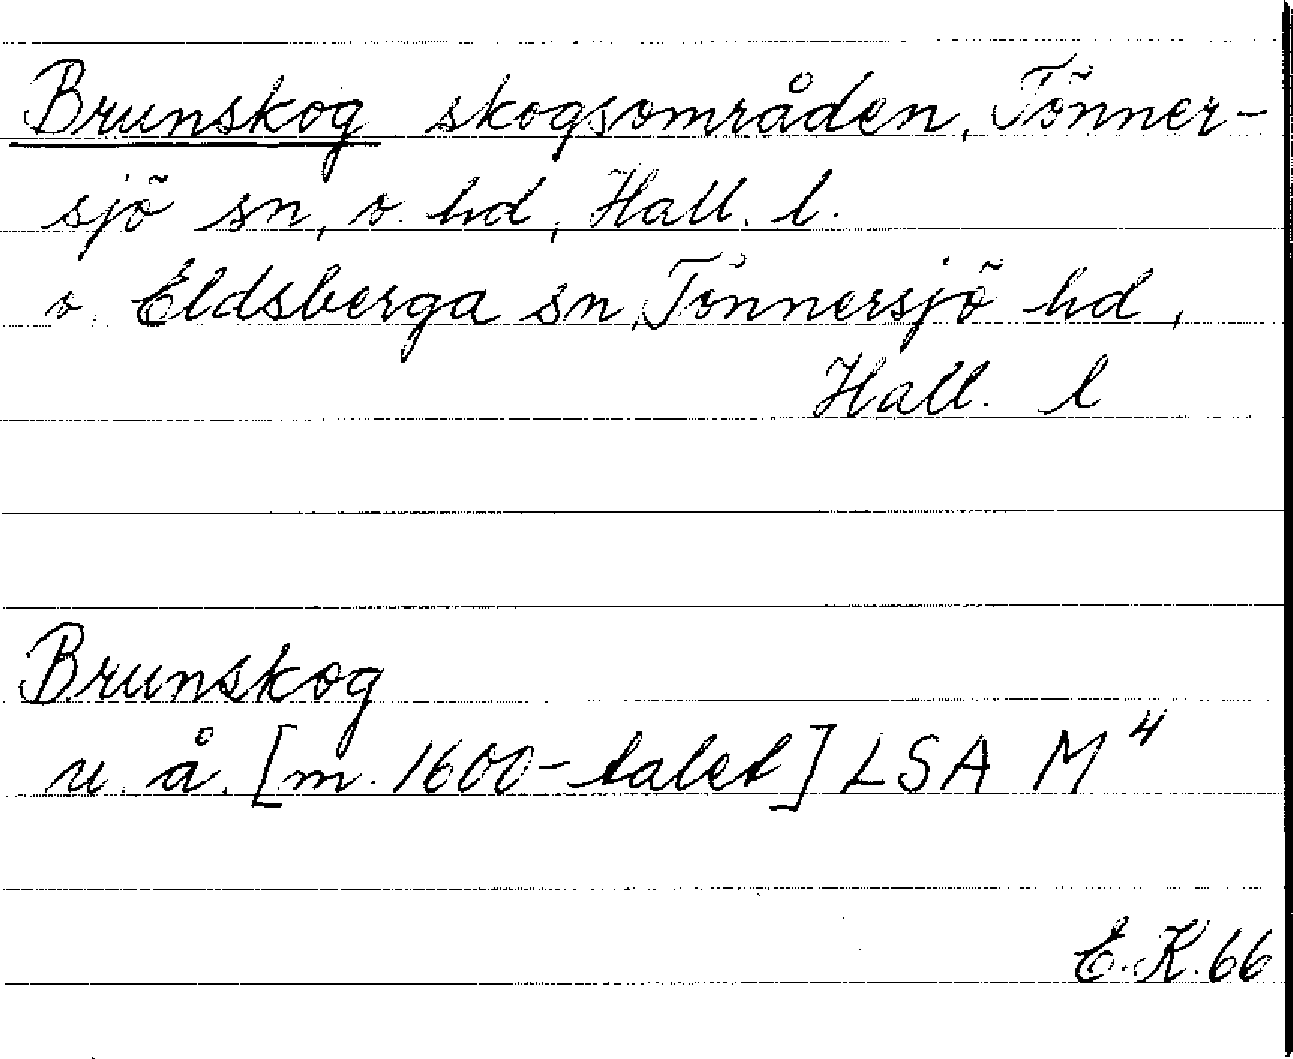 Brunskog skogsområden, Tönner-
sjö sn, o. hd, Hall. l.
o. Eldsberga sn, Tönnersjö hd,
Hall. l
Brunskog
u. å. [m. 1600-talet] LSA M 4
E.K. 66